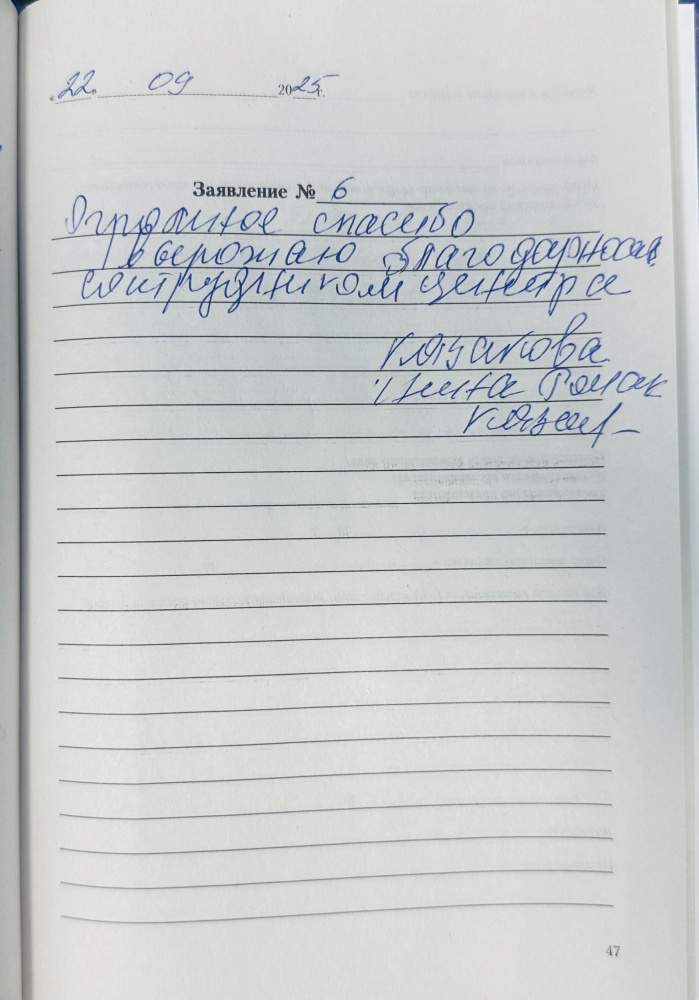 «22» 09 2025 г.
Заявление № 6
Огромное спасибо
выражаю благодарность
сотрудником центра
Казакова
Нина
47